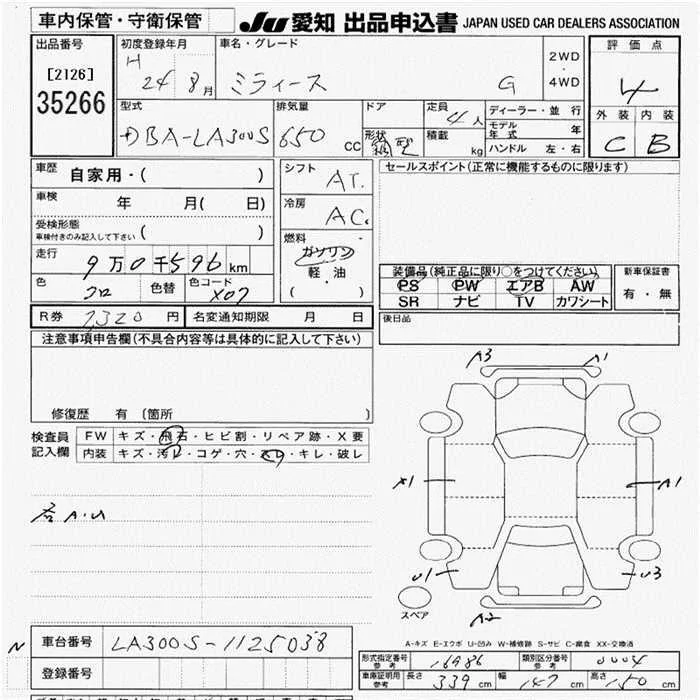 車内保管・守衛保管 JU 愛知 出品申込書 JAPAN USED CAR DEALERS ASSOCIATION
出品番号 初度登録年月 車名・グレード 評価点
[2126] H 24 8月 ミライース G 2WD・4WD 4
35266 型式 排気量 ドア 定員 4人 ディーラー・並行 外装 内装
DBA-LA300S 650 cc 形状 箱型 積載 kg モデル年式 年 C B
ハンドル 左・右
車歴 自家用・( ) シフト AT. セールスポイント(正常に機能するものに限ります)
車検 年 月( 日) 冷房 AC.
受検形態 ( )
車検付きのみ記入して下さい
燃料
走行 9万0千596km ガソリン 装備品(純正品に限り○をつけてください) 新車保証書
色 クロ 色替 色コード X07 軽・油 PS PW エアB AW 有・無
( ・ ) SR ナビ TV カワシート
R券 7320円 名変通知期限 月 日 後日品
注意事項申告欄(不具合内容等は具体的に記入して下さい)
修復歴 有 [箇所 ]
検査員 FW キズ・飛石・ヒビ割・リペア跡・X要
記入欄 内装 キズ・汚レ・コゲ・穴・スレ・キレ・破レ
A3 A1
X1 A1
右A.U
U1 U3
スペア A2
A-キズ E-エクボ U-凹み W-補修跡 S-サビ C-腐食 XX-交換済
N 車台番号 LA300S-1125038
登録番号
形式指定番号 参考 16986 類別区分番号 参考 0004
車庫証明用 参考 長さ 339cm 幅 147cm 高さ 150cm